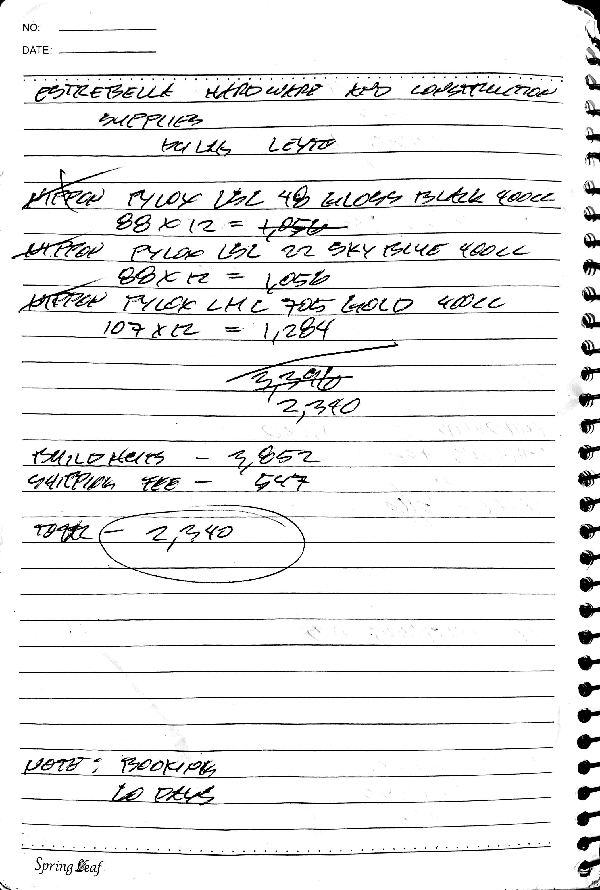 NO:
DATE:
ESTREBELLA HARDWARE AND CONSTRUCTION
SUPPLIES
LEYTE
NIPPON PYLOX LBL 48 GLOSS BLACK 400CC
88 X 12 = 1,056
NIPPON PYLOX LBL 22 SKY BLUE 400CC
88 X 12 = 1,056
NIPPON PYLOX LMC 705 GOLD 400CC
107 X 12 = 1,284
3,396
2,340
BUILDMATES - 3,852
SHIPPING FEE - 547
TOTAL - 2,340
NOTE: BOOKING
DAYS
Spring Leaf